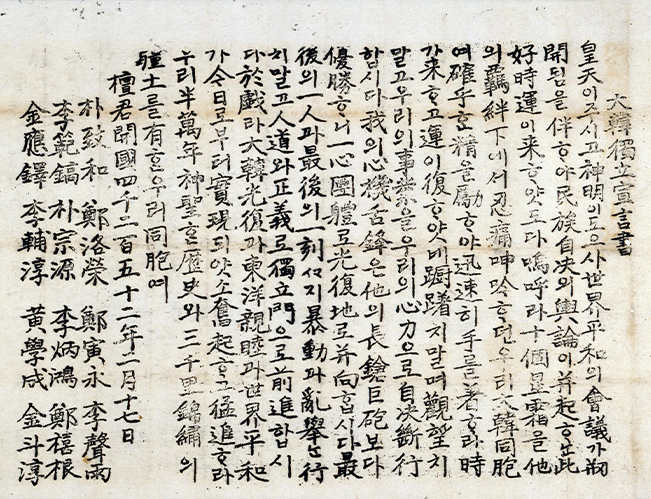 大韓獨立宣言書
皇天이주시고神明이도으사世界平和의會議가刱
開됨을伴하야民族自決의輿論이幷起하는此
好時運이來하얏도다嗚呼라十個星霜을他
의羈絆下에서忍痛呻吟하던우리大韓同胞
여確乎한精을勵하야迅速히手를着하라時
가来하고運이復하얏네躕躇치말며觀望치
말고우리의事業을우리의心力으로自決斷行
합시다我의心機舌鋒은他의長鎗巨砲보다
優勝하니一心團體로光復地로幷向합시다最
後의一人과最後의一刻까지暴動과亂擧는行
치말고人道와正義로獨立門으로前進합시
다於戱라大韓光復과東洋親睦과世界平和
가今日로부터實現되얏소奮起하고猛進하라
우리半萬年神聖한歷史와三千里錦繡의
疆土를有한우리同胞여
檀君開國四千二百五十二年二月十七日
朴致和 鄭洛榮 鄭寅永 李聲雨
李範鎬 朴宗源 李炳鴻 鄭禧根
金應鐸 李輔淳 黃學成 金斗淳